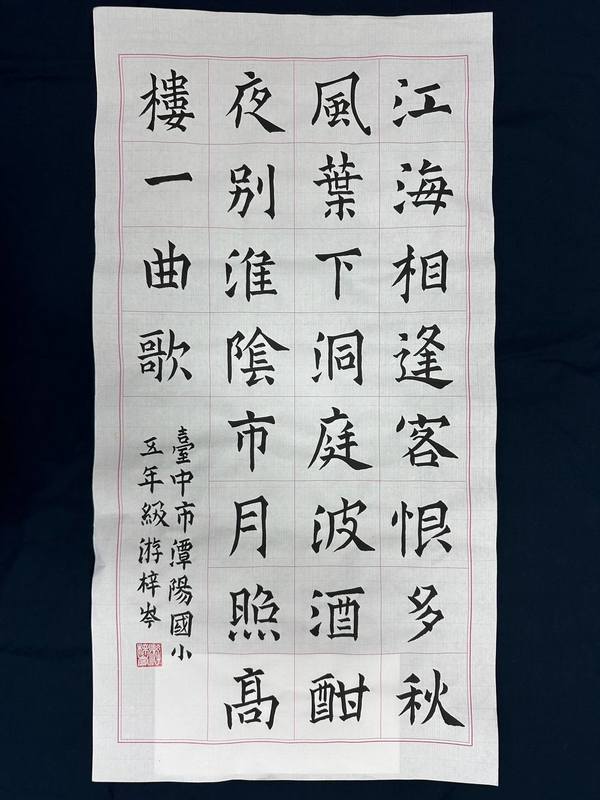 江海相逢客恨多秋
風葉下洞庭波酒酣
夜別淮陰市月照高
樓一曲歌
臺中市潭陽國小
五年級游梓岑